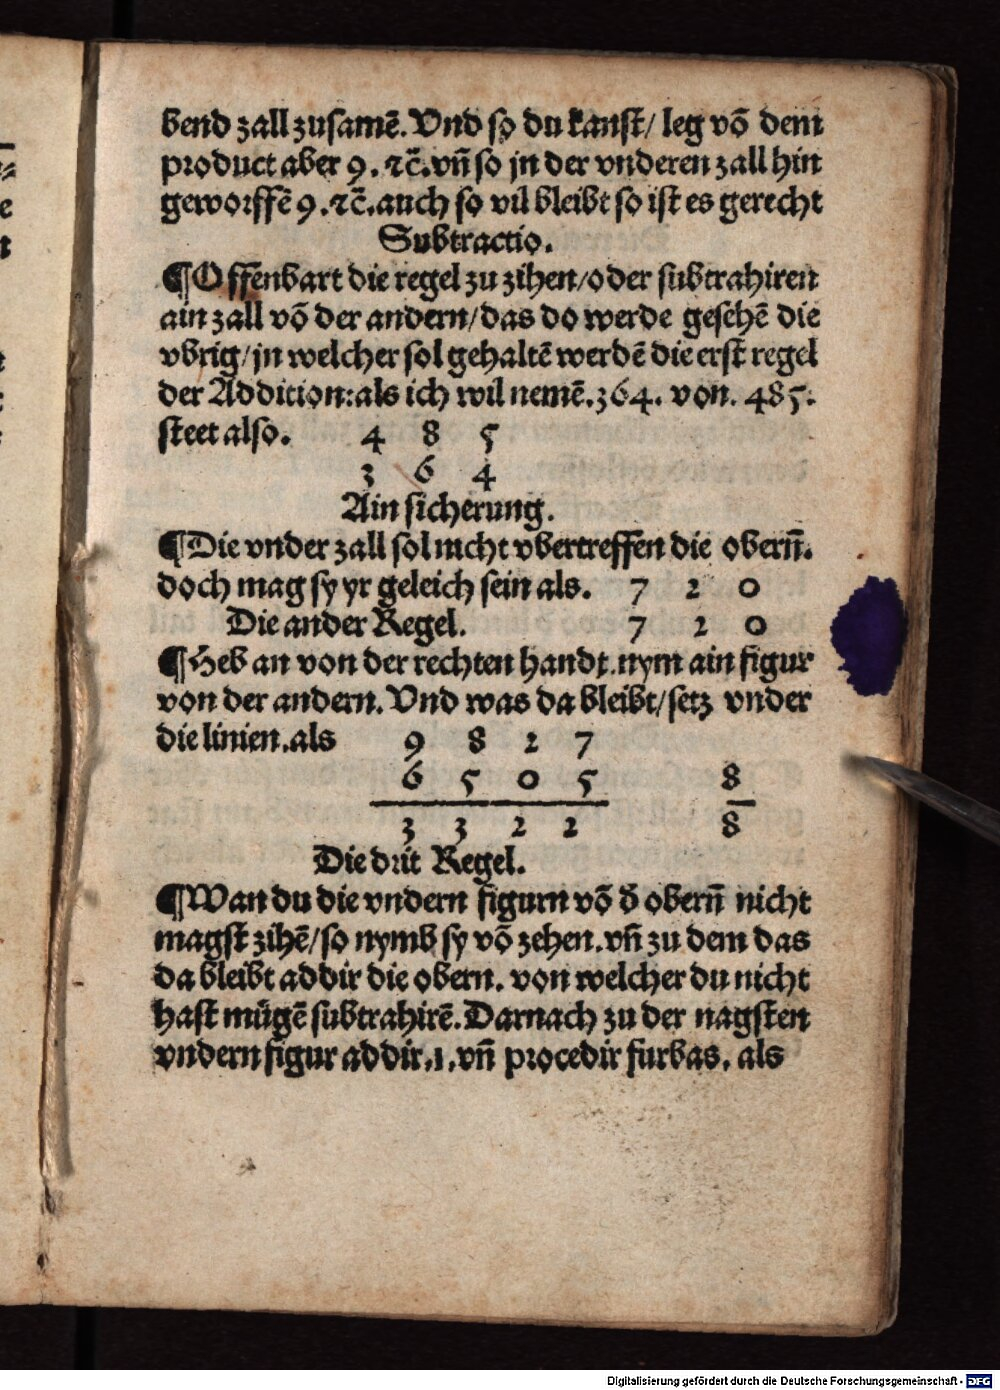 bend zall zusamē. Vnd so du kanst/ leg võ dem
product aber 9. ⁊c̄. vn̄ so jn der vnderen zall hin
geworffē 9. ⁊c̄. auch so vil bleibt so ist es gerecht
Subtractio.
¶Offenbart die regel zu zihen/oder subtrahiren
ain zall võ der andern/das do werde gesehē die
vbrig/jn welcher sol gehaltē werdē die erst regel
der Addition:als ich wil nemē.364. von. 485.
steet also. 4 8 5
3 6 4
Ain sicherung.
¶Die vnder zall sol nicht vbertreffen die obern̄.
doch mag sy yr geleich sein als. 7 2 0
Die ander Regel. 7 2 0
¶Heb an von der rechten handt.nym ain figur
von der andern. Vnd was da bleibt/setz vnder
die linien.als 9 8 2 7
6 5 0 5 8
3 3 2 2 8
Die drit Regel.
¶Wan du die vndern figurn võ đ obern̄ nicht
magst zihē/so nymb sy võ zehen.vn̄ zu dem das
da bleibt addir die obern. von welcher du nicht
hast mügē subtrahirē. Darnach zu der nagsten
vndern figur addir.1.vn̄ procedir furbas. als
Digitalisierung gefördert durch die Deutsche Forschungsgemeinschaft - DFG